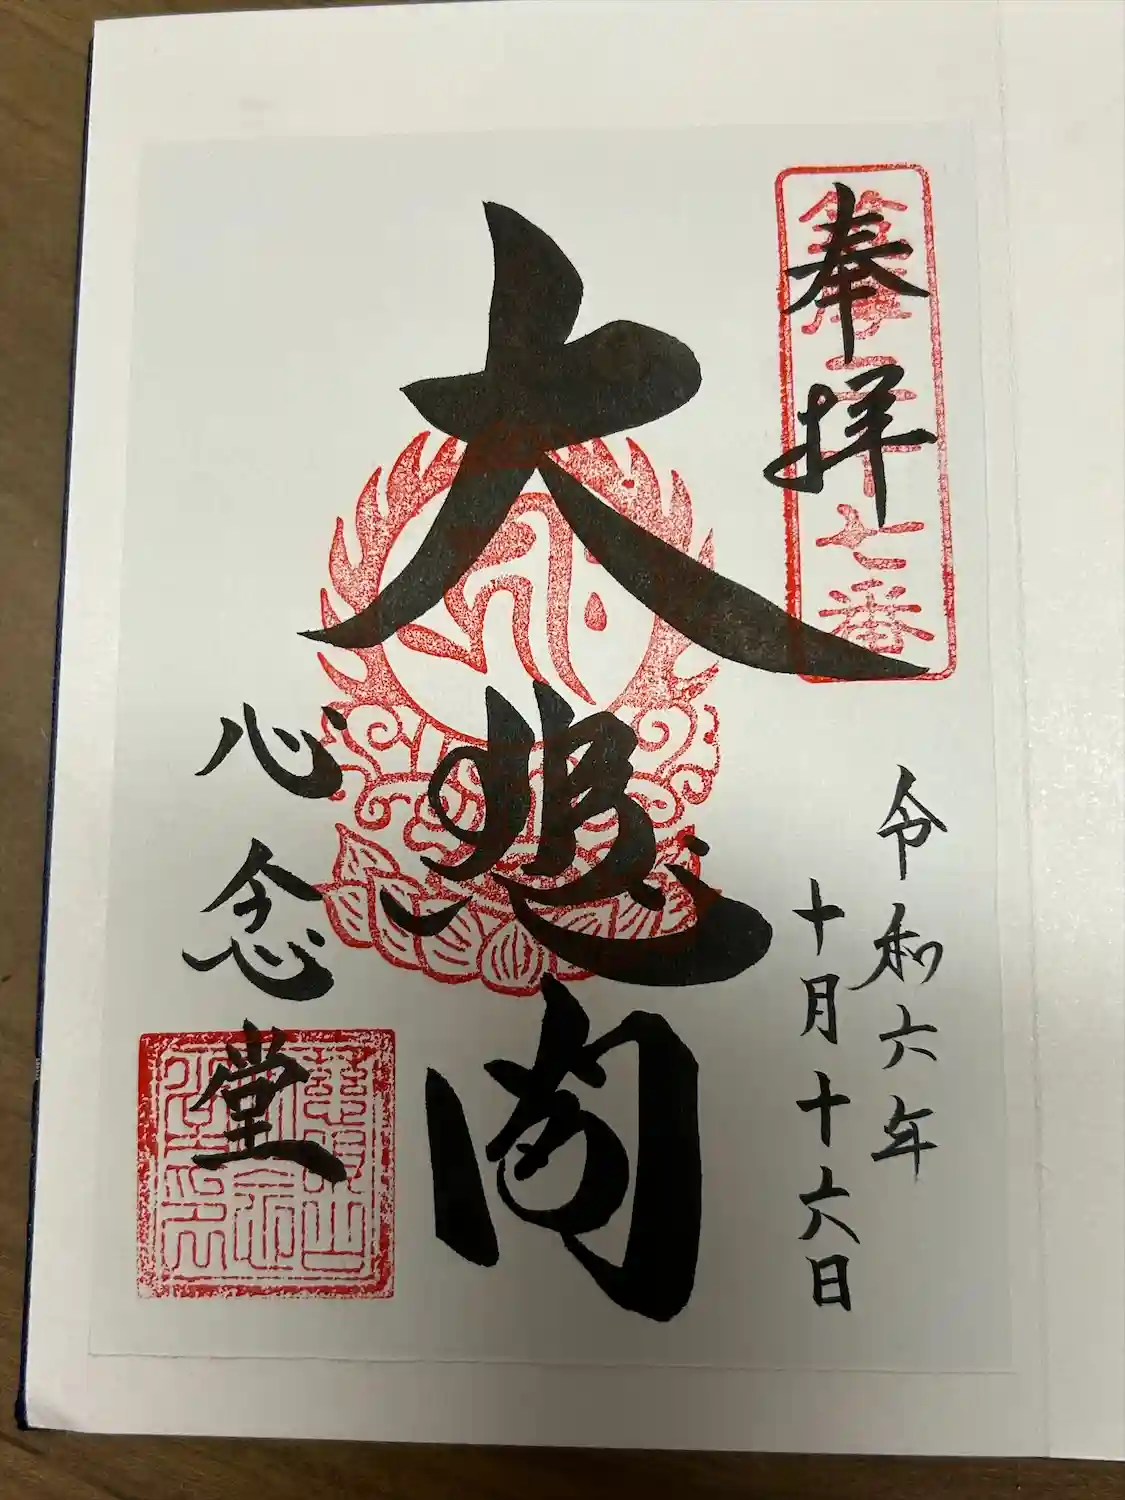 奉拝
七番
令和六年
十月十六日
大悲閣
心念堂